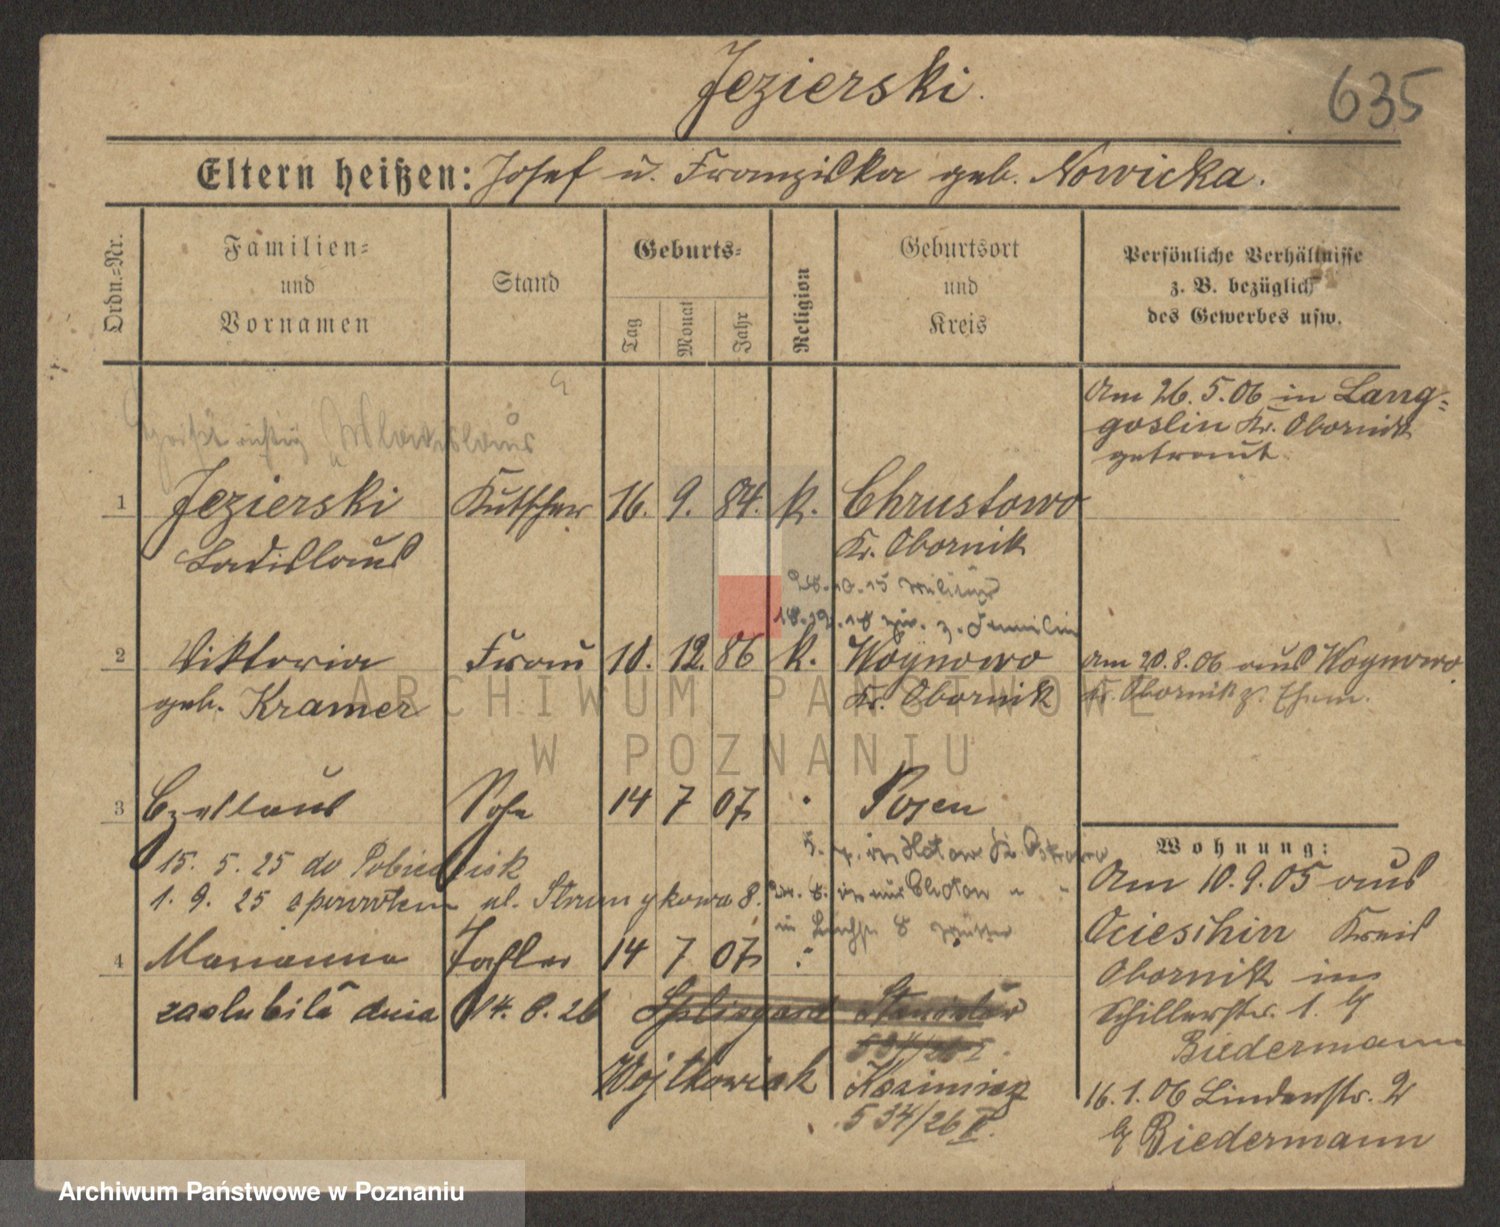 Jezierski.
635
Eltern heißen: Josef u. Franziska geb. Nowicka.
Ordn.-Nr.
Familien-
und
Vornamen
Stand
Geburts-
Tag
Monat
Jahr
Religion
Geburtsort
und
Kreis
Persönliche Verhältnisse
z. B. bezüglich
des Gewerbes usw.
Am 26.5.06 in Lang-
goslin Kr. Obornik
getraut.
heißt richtig Wladislaus
1 Jezierski Kutscher 16. 9. 84. k. Chrustowo
Ladislaus Kr. Obornik
28.10.15 Militär
18.12.18 zur. z. Familie
2 Viktoria Frau 10. 12. 86 k. Woynowo
geb. Kramer Kr. Obornik
Am 20.8.06 aus Woynowo
Kr. Obornik z. Ehem.
3 Czeslaus Sohn 14 7 07 Posen
15. 5. 25 do Pobiedzisk
1. 9. 25 z powrotem ul. 8.
4 Marianna Tochter 14 7 07
zaślubiła dnia 14. 8. 26
Wojtkowiak Kazimierz
534/26 II.
Wohnung:
Am 10.9.05 aus
Ocieschin Kreis
Obornik in
Schillerstr. 1. b/
Biedermann
16.1.06 Lindenstr. 2
b/ Biedermann
ARCHIWUM PAŃSTWOWE
W POZNANIU
Archiwum Państwowe w Poznaniu